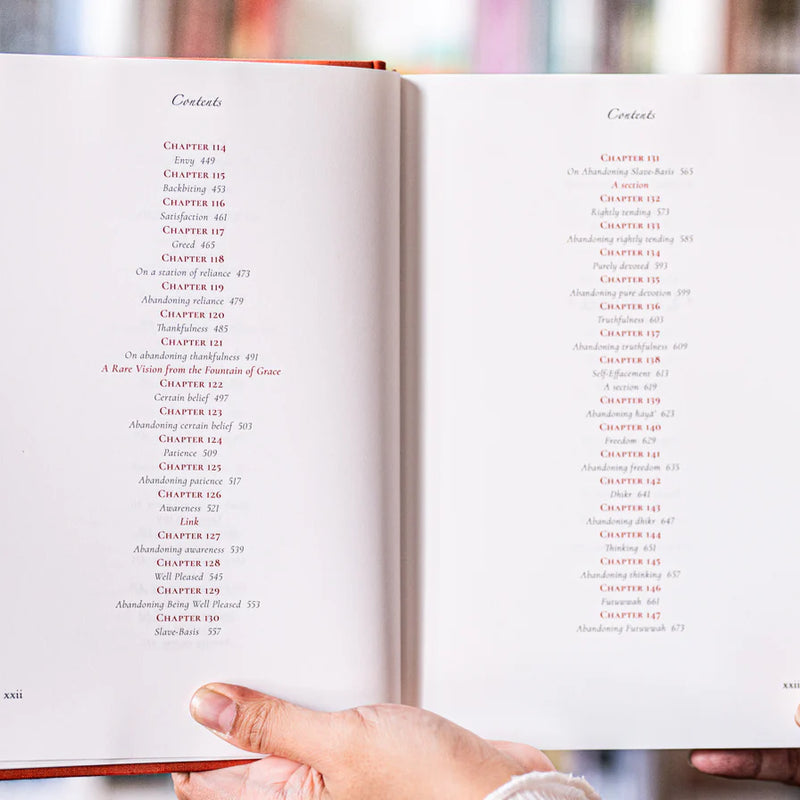 Contents
Chapter 114
Envy 449
Chapter 115
Backbiting 453
Chapter 116
Satisfaction 461
Chapter 117
Greed 465
Chapter 118
On a station of reliance 473
Chapter 119
Abandoning reliance 479
Chapter 120
Thankfulness 485
Chapter 121
On abandoning thankfulness 491
A Rare Vision from the Fountain of Grace
Chapter 122
Certain belief 497
Chapter 123
Abandoning certain belief 503
Chapter 124
Patience 509
Chapter 125
Abandoning patience 517
Chapter 126
Awareness 521
Link
Chapter 127
Abandoning awareness 539
Chapter 128
Well Pleased 545
Chapter 129
Abandoning Being Well Pleased 553
Chapter 130
Slave-Basis 557
xxii
Contents
Chapter 131
On Abandoning Slave-Basis 565
A section
Chapter 132
Rightly tending 573
Chapter 133
Abandoning rightly tending 585
Chapter 134
Purely devoted 593
Chapter 135
Abandoning pure devotion 599
Chapter 136
Truthfulness 603
Chapter 137
Abandoning truthfulness 609
Chapter 138
Self-Effacement 613
A section 619
Chapter 139
Abandoning ḥayāʾ 623
Chapter 140
Freedom 629
Chapter 141
Abandoning freedom 635
Chapter 142
Dhikr 641
Chapter 143
Abandoning dhikr 647
Chapter 144
Thinking 651
Chapter 145
Abandoning thinking 657
Chapter 146
Futuwwah 661
Chapter 147
Abandoning Futuwwah 673